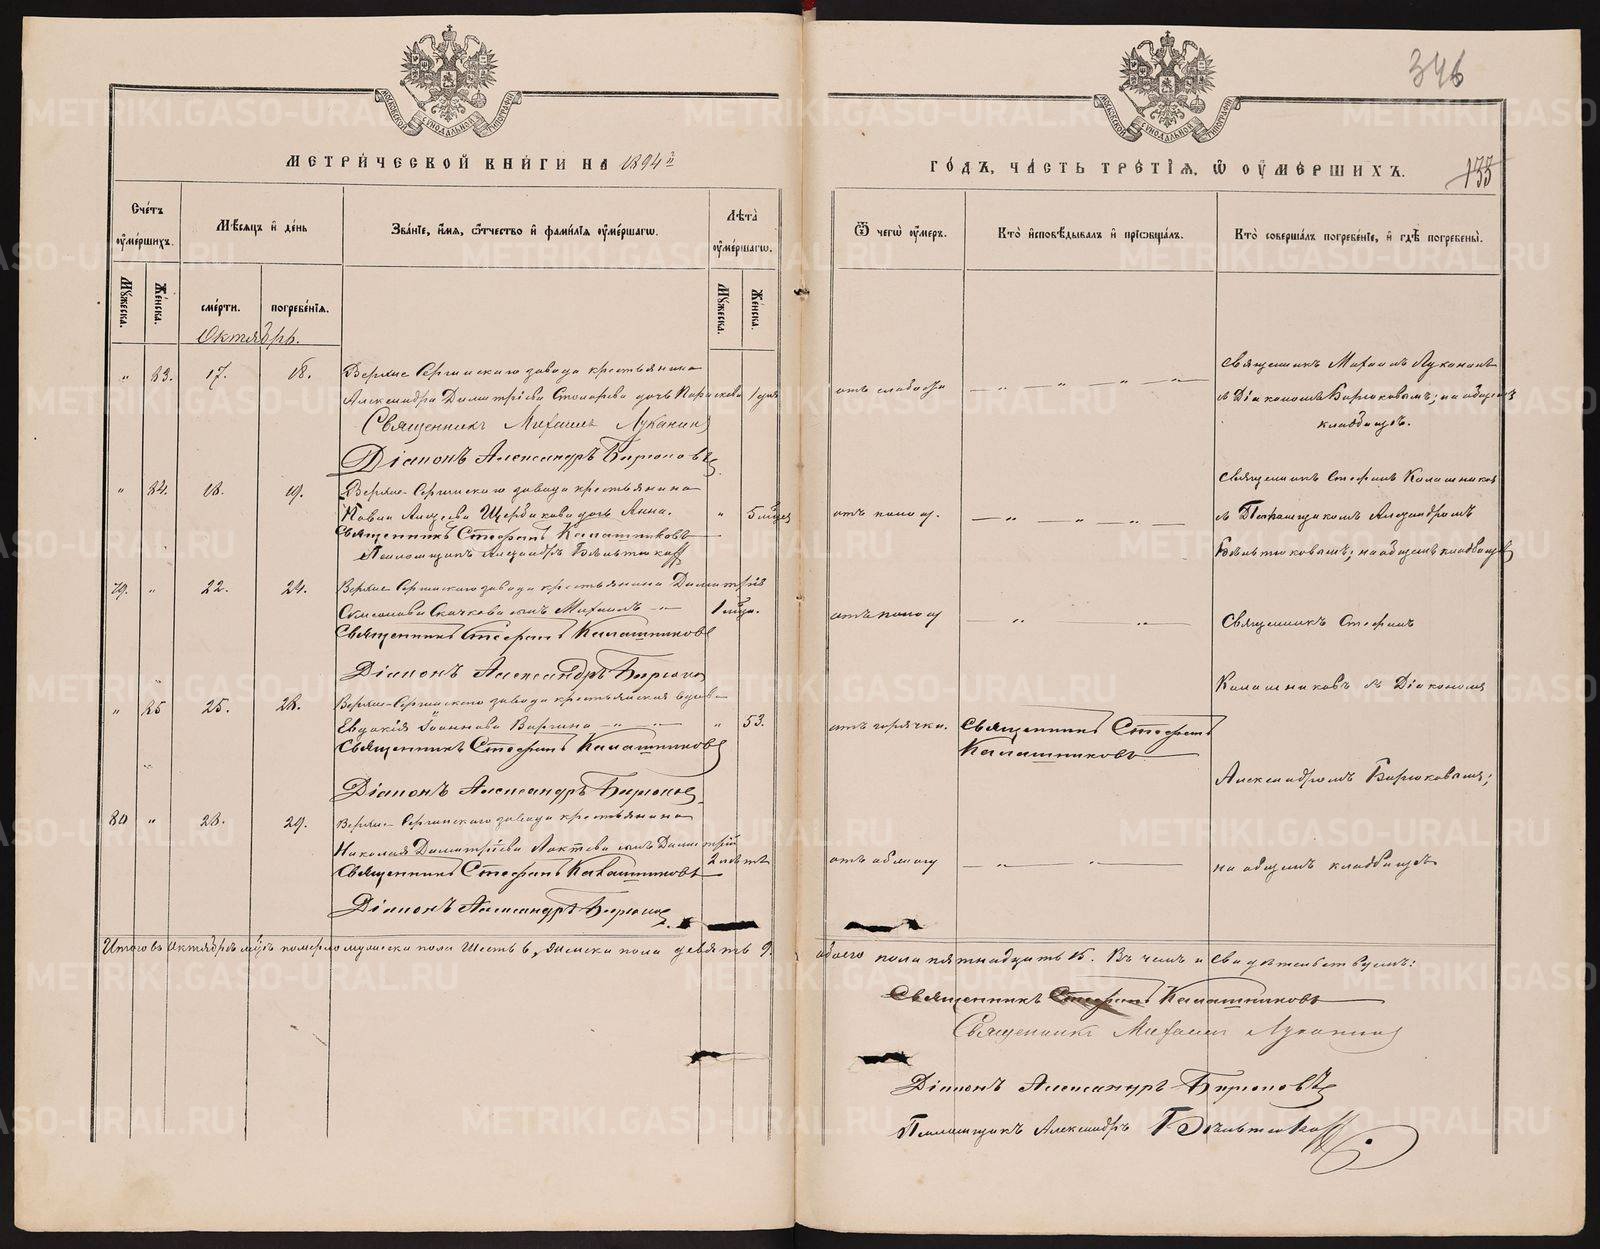 МЕТРИЧЕСКОЙ КНИГИ НА 1894й
ГОДЪ, ЧАСТЬ ТРЕТІЯ, Ѿ ОУМЕРШИХЪ.
346
133
Счетъ оумершихъ.
Мѣсяцъ и день
Званіе, имя, отчество и фамиліа оумершагѡ.
Лѣта оумершагѡ.
Ѿ чегѡ оумеръ.
Кто исповѣдывалъ и пріобщалъ.
Кто совершалъ погребеніе, и гдѣ погребены.
Мужеска.
Женска.
смерти.
погребенія.
Мужеска.
Женска.
Октябрь.
" 83. 17. 18. Верхне Сергинскаго завода крестьянина
Александра Димитріева Столарева дочь Параскева 1 дня
отъ слабости
Священникъ Михаилъ Луканинъ
съ Діакономъ Бирюковымъ; на общемъ
кладбищѣ.
Священникъ Михаилъ Луканин
Діаконъ Александръ Бирюковъ
" 84. 18. 19. Верхне-Сергинскаго завода крестьянина
Павла Андреева Щербакова дочь Анна. " 5 мѣся
отъ поносу.
Священникъ Стефанъ Калашниковъ
съ Псаломщикомъ Александромъ
на общемъ кладбищѣ
Священникъ Стефанъ Калашниковъ
Псаломщикъ Александръ
79. " 22. 24. Верхне-Сергинскаго завода крестьянина Димитрія
Симеонова Скачкова сынъ Михаилъ 1 мѣся.
отъ поносу
Священникъ Стефанъ
Священникъ Стефанъ Калашниковъ
Діаконъ Александръ Бирюков
Калашниковъ съ Діакономъ
" 85 25. 28. Верхне-Сергинскаго завода крестьянская вдова
Евдокія Іоаннова Варгина " 53.
отъ горячки.
Священникъ Стефанъ
Калашниковъ
Священникъ Стефанъ Калашниковъ
Александромъ Бирюковымъ;
Діаконъ Александръ Бирюков
80 " 28. 29. Верхне-Сергинскаго завода крестьянина
Николая Димитріева Локтева сынъ Димитрій
2 лѣтъ
на общемъ кладбищѣ
Священникъ Стефанъ Калашниковъ
Діаконъ Александръ Бирюков
Итого въ октябрѣ мѣсѣ померло мужеска пола шесть 6, женска пола девять 9. обоего пола пятнадцать 15. Въ чемъ и свидѣтельствуемъ:
Священникъ Стефанъ Калашниковъ
Священникъ Михаилъ Луканин
Діаконъ Александръ Бирюковъ
Псаломщикъ Александръ
МОСКОВСКОЙ СѴНОДАЛЬНОЙ ТИПОГРАФІИ
МОСКОВСКОЙ СѴНОДАЛЬНОЙ ТИПОГРАФІИ
METRIKI.GASO-URAL.RU